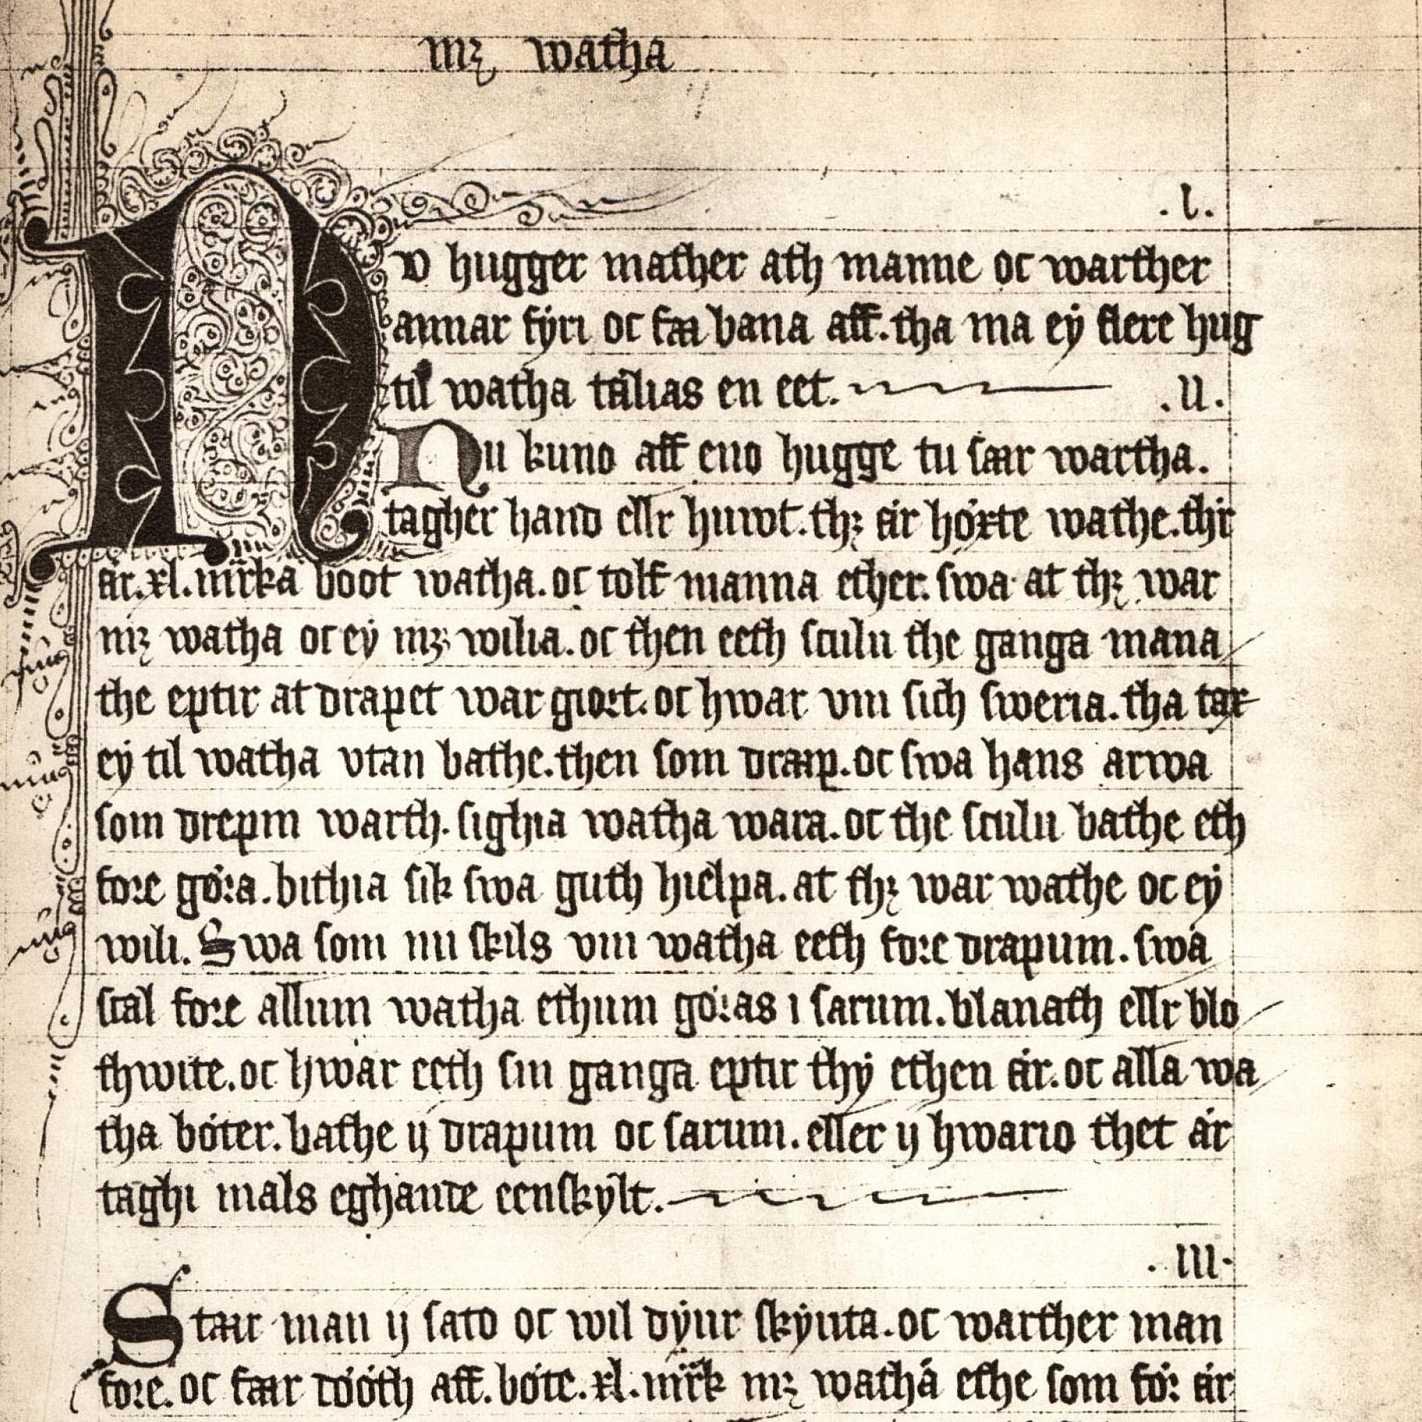 mꝫ watha
.I.
NV hugger mather ath manne oc warther
annar fyri oc fær bana aff. tha ma ey flere hug
til watha tælias en eet.
.II.
Nu kuno aff eno hugge tu saar wartha.
tagher hand ellr huwt. thꝫ ær høxte wathe. thr
ær. xl. mrka boot watha. oc tolf manna ether. swa at thꝫ war
mꝫ watha oc ey mꝫ wilia. oc then eeth sculu the ganga mana
the eptir at drapet war giort. oc hwar um sich sweria. tha tax
ey til watha utan bathe. then som drap. oc swa hans arwa
som drepin warth. sighia watha wara. oc the sculu bathe eth
fore gøra. bithia sik swa guth hielpa. at thꝫ war wathe oc ey
wili. Swa som nu skils um watha eeth fore drapum. swa
scal fore allum watha ethum gøras i sarum. blanath ellr blo
thwite. oc hwar eeth sin ganga eptir thy ethen ær. oc alla wa
tha bøter. bathe ij drapum oc sarum. eller ij hwario thet ær
taghi mals eghande eenskylt.
.III.
Staar man ij sato oc wil dyur skyuta. oc warther man
fore. oc faar dööth aff. bøte. xl. mrk mꝫ watha ethe som før ær